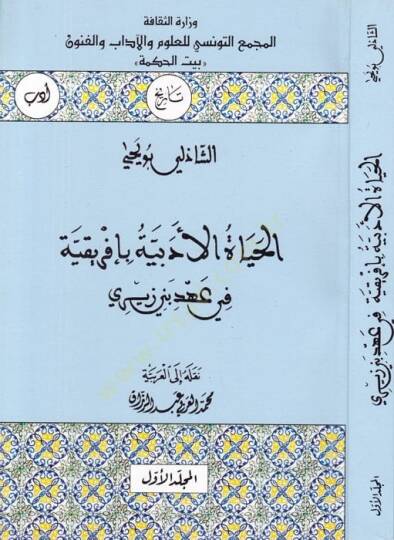 وزارة الثقافة
المجمع التونسي للعلوم والآداب والفنون
«بيت الحكمة»
تاريخ
أدب
الشاذلي بويحيى
الحَيَاة الأَدَبيَّة بإفريقيّة
في عَهْد بني زيري
نقله إلى العربيّة
محمد العربي عبد الرزاق
المجلد الأوّل
الشاذلي بويحيى
الحياة الأدبية بإفريقية في عهد بني زيري
المجلد الأول